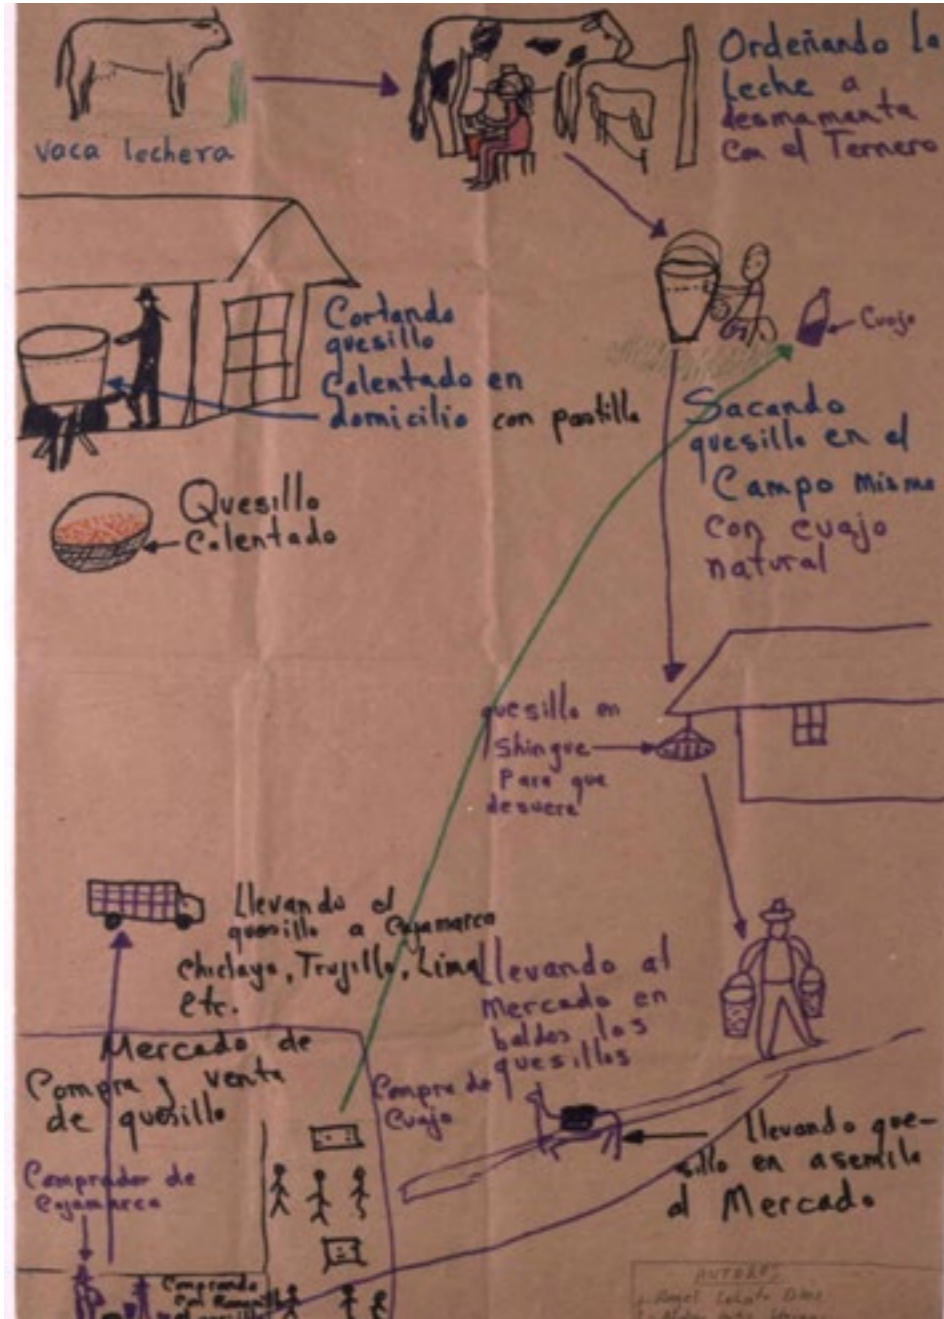 vaca lechera
Ordeñando la
leche a
desmamanta
con el Ternero
Cuajo
Cortando
quesillo
Calentado en
domicilio con pastilla
Sacando
quesillo en el
Campo mismo
con cuajo
natural
Quesillo
Calentado
quesillo en
shingue
para que
desuere
Llevando el
quesillo a Cajamarca
Chiclayo, Trujillo, Lima
etc.
Llevando al
Mercado en
baldes los
quesillos
Mercado de
Compra y venta
de quesillo
Compra de
Cuajo
llevando que-
sillo en asemila
al Mercado
Comprador de
Cajamarca
Comprando
con
AUTORES
Angel